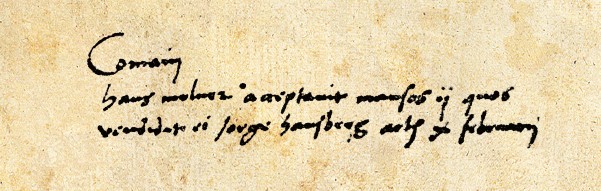 Comaiij
hans molner acceptavit mansos ij quos
vendidit ei Jorge hansberg acth x februarij